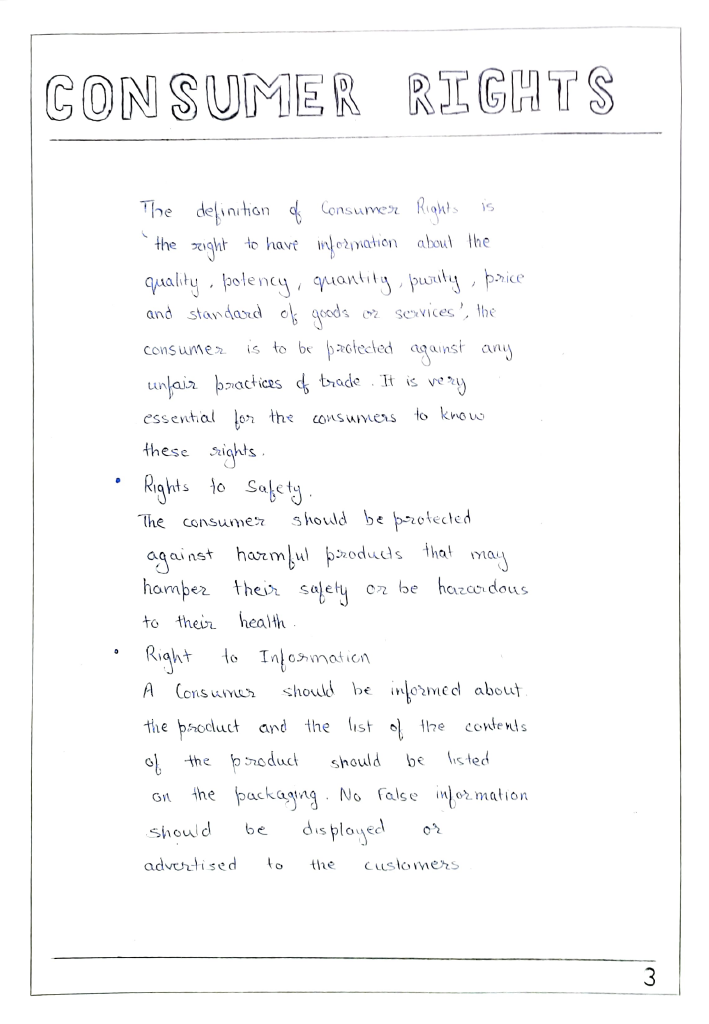 CONSUMER RIGHTS
The definition of Consumer Rights is
'the right to have information about the
quality, potency, quantity, purity, price
and standard of goods or services', the
consumer is to be protected against any
unfair practices of trade. It is very
essential for the consumers to know
these rights.
• Rights to Safety.
The consumer should be protected
against harmful products that may
hamper their safety or be hazardous
to their health.
• Right to Information
A Consumer should be informed about
the product and the list of the contents
of the product should be listed
on the packaging. No False information
should be displayed or
advertised to the customers
3